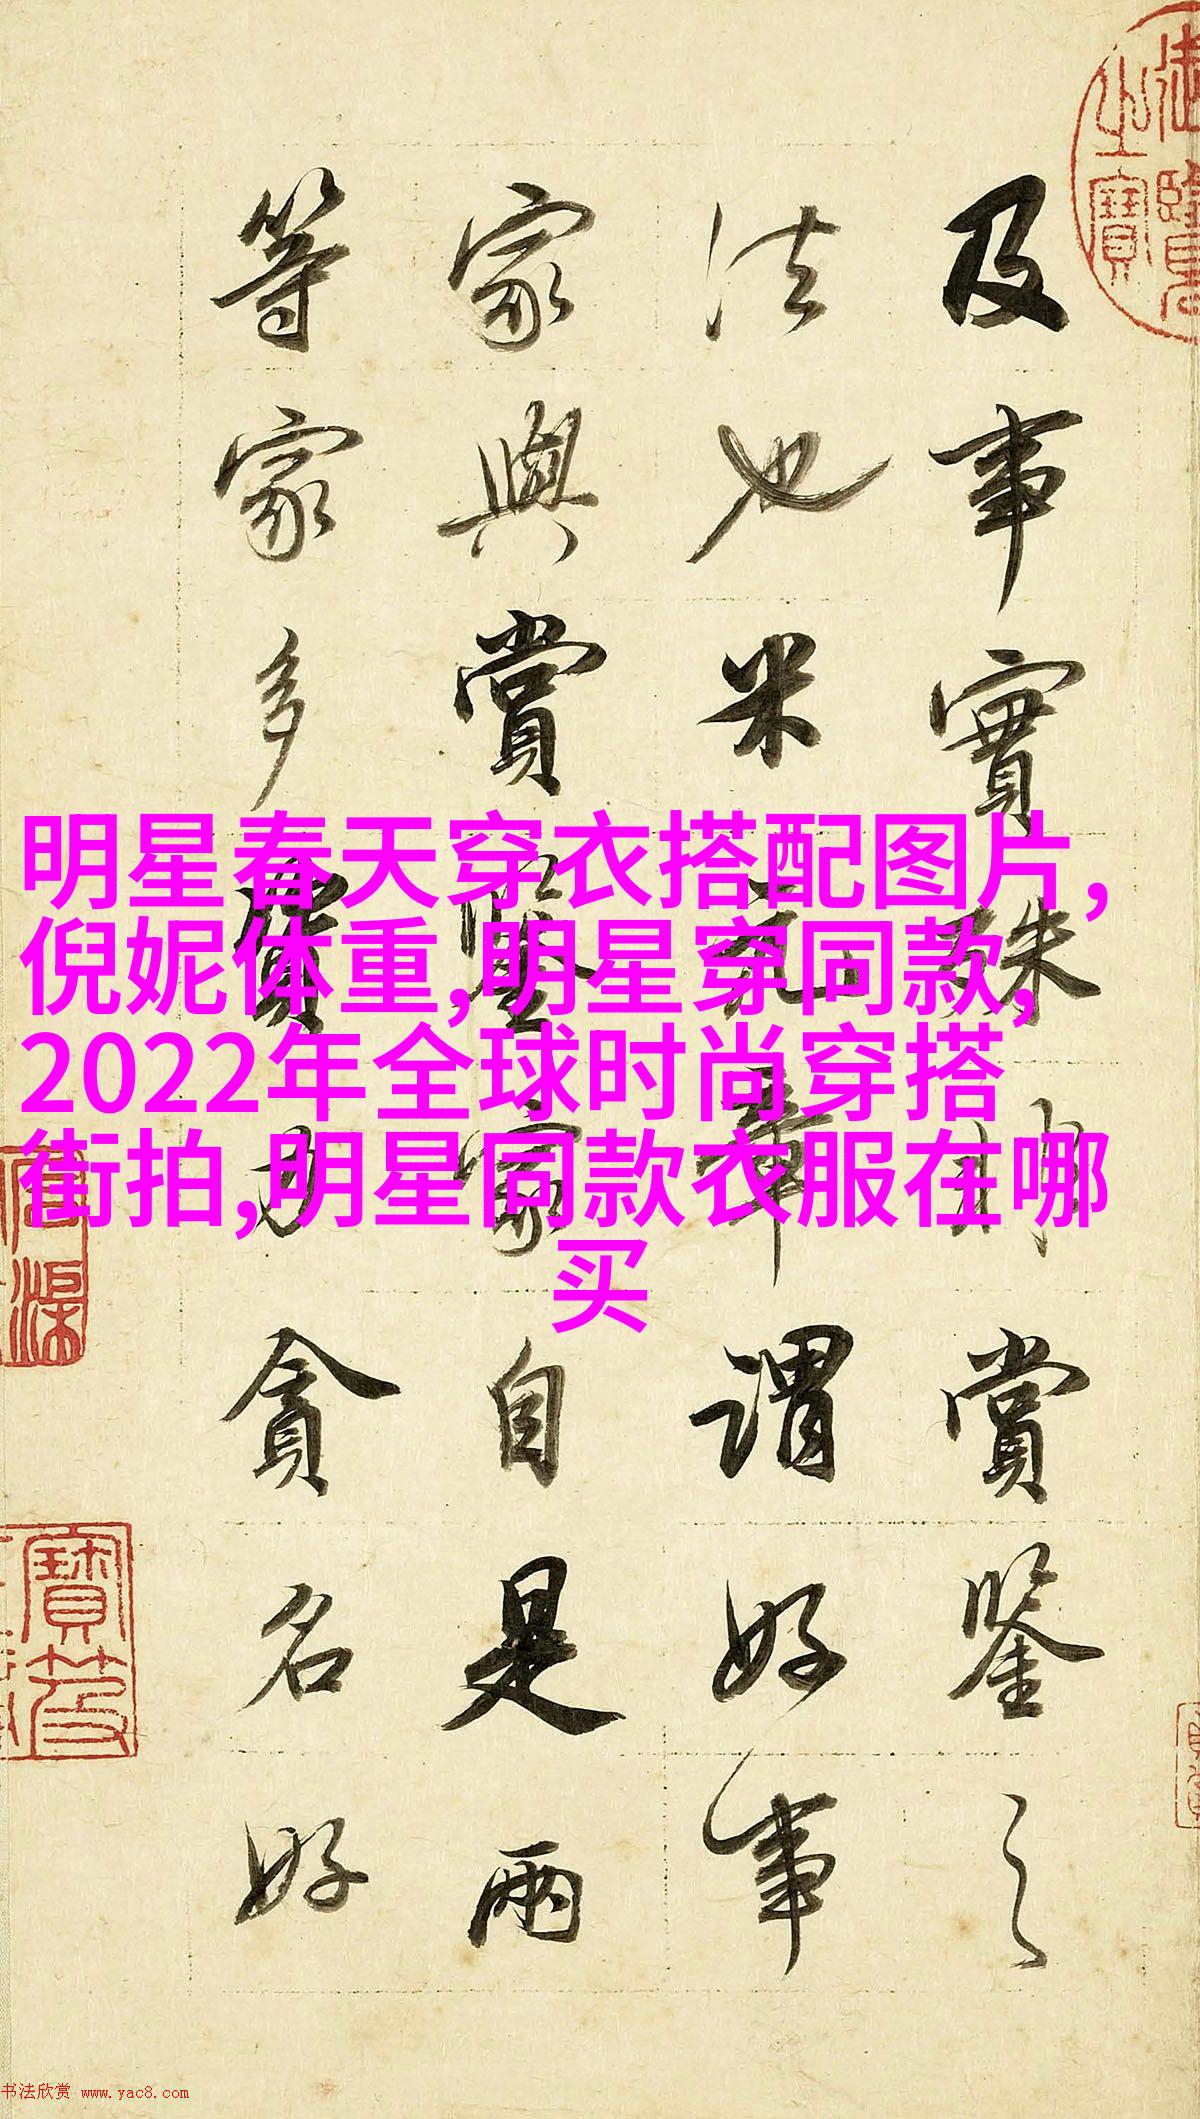 及事實殊別賞鑒之
法也米元章謂好事
家與賞鑒家自是兩
等家多資力貪名好
明星春天穿衣搭配图片,
倪妮体重,明星穿同款,
2022年全球时尚穿搭
街拍,明星同款衣服在哪
买
书法欣赏 www.yac8.com